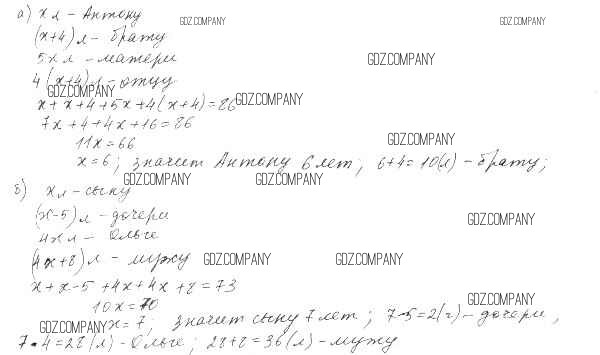 а) x л - Антону
(x+4) л - брату
5x л - матери
4(x+4) л - отцу
x + x + 4 + 5x + 4(x+4) = 86
7x + 4 + 4x + 16 = 86
11x = 66
x = 6; значит Антону 6 лет; 6+4=10(л) - брату;
б) x л - сыну
(x-5) л - дочери
4x л - Ольге
(4x+8) л - мужу
x + x - 5 + 4x + 4x + 8 = 73
10x = 70
x = 7; значит сыну 7 лет; 7-5=2(г) - дочери,
7·4=28(л) - Ольге; 28+8=36(л) - мужу
GDZ.COMPANY
GDZ.COMPANY
GDZ.COMPANY
GDZ.COMPANY
GDZ.COMPANY
GDZ.COMPANY
GDZ.COMPANY
GDZ.COMPANY
GDZ.COMPANY
GDZ.COMPANY
GDZ.COMPANY
GDZ.COMPANY
GDZ.COMPANY